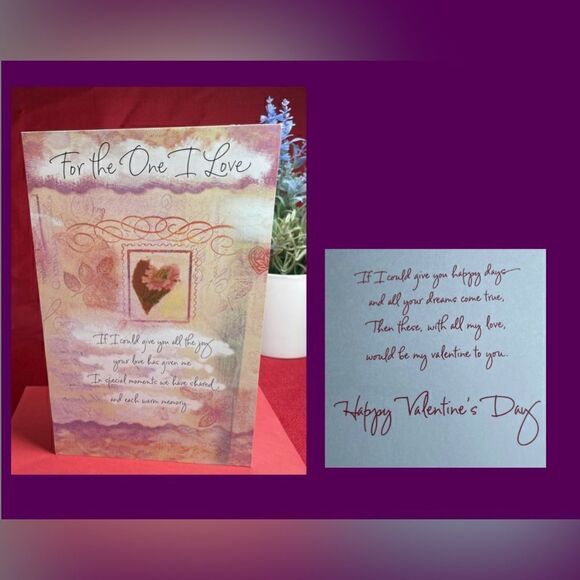 For the One I Love
If I could give you all the joy
your love has given me
In special moments we have shared,
and each warm memory
If I could give you happy days
and all your dreams come true,
Then these, with all my love,
would be my valentine to you.
Happy Valentine's Day